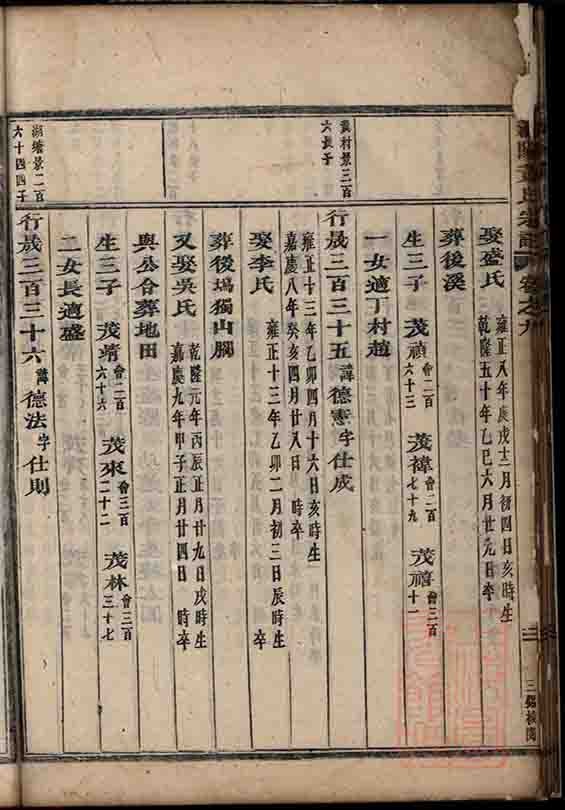 氏宗譜 卷之九
娶盛氏 雍正八年庚戌十二月初四日亥時生 乾隆五十年乙巳六月廿九日卒
葬後溪
生三子 茂禎會二百六十三 茂禕會二百七十九 茂禧會三百十一
一女適丁村趙
黃村景三百六長子
行晟三百三十五 諱德憲字仕成
雍正十三年乙卯四月十六日亥時生 嘉慶八年癸亥四月廿八日 時卒
娶李氏 雍正十三年乙卯二月初三日辰時生 時卒
葬後塢獨山腳
又娶吳氏 乾隆元年丙辰正月廿九日戌時生 嘉慶九年甲子正月廿四日 時卒
與公合葬地田
生三子 茂靖會二百六十六 茂來會三百二十二 茂林會三百三十七
二女長適盛
湖塘景二百六十四四子
行晟三百三十六 諱德法字仕則